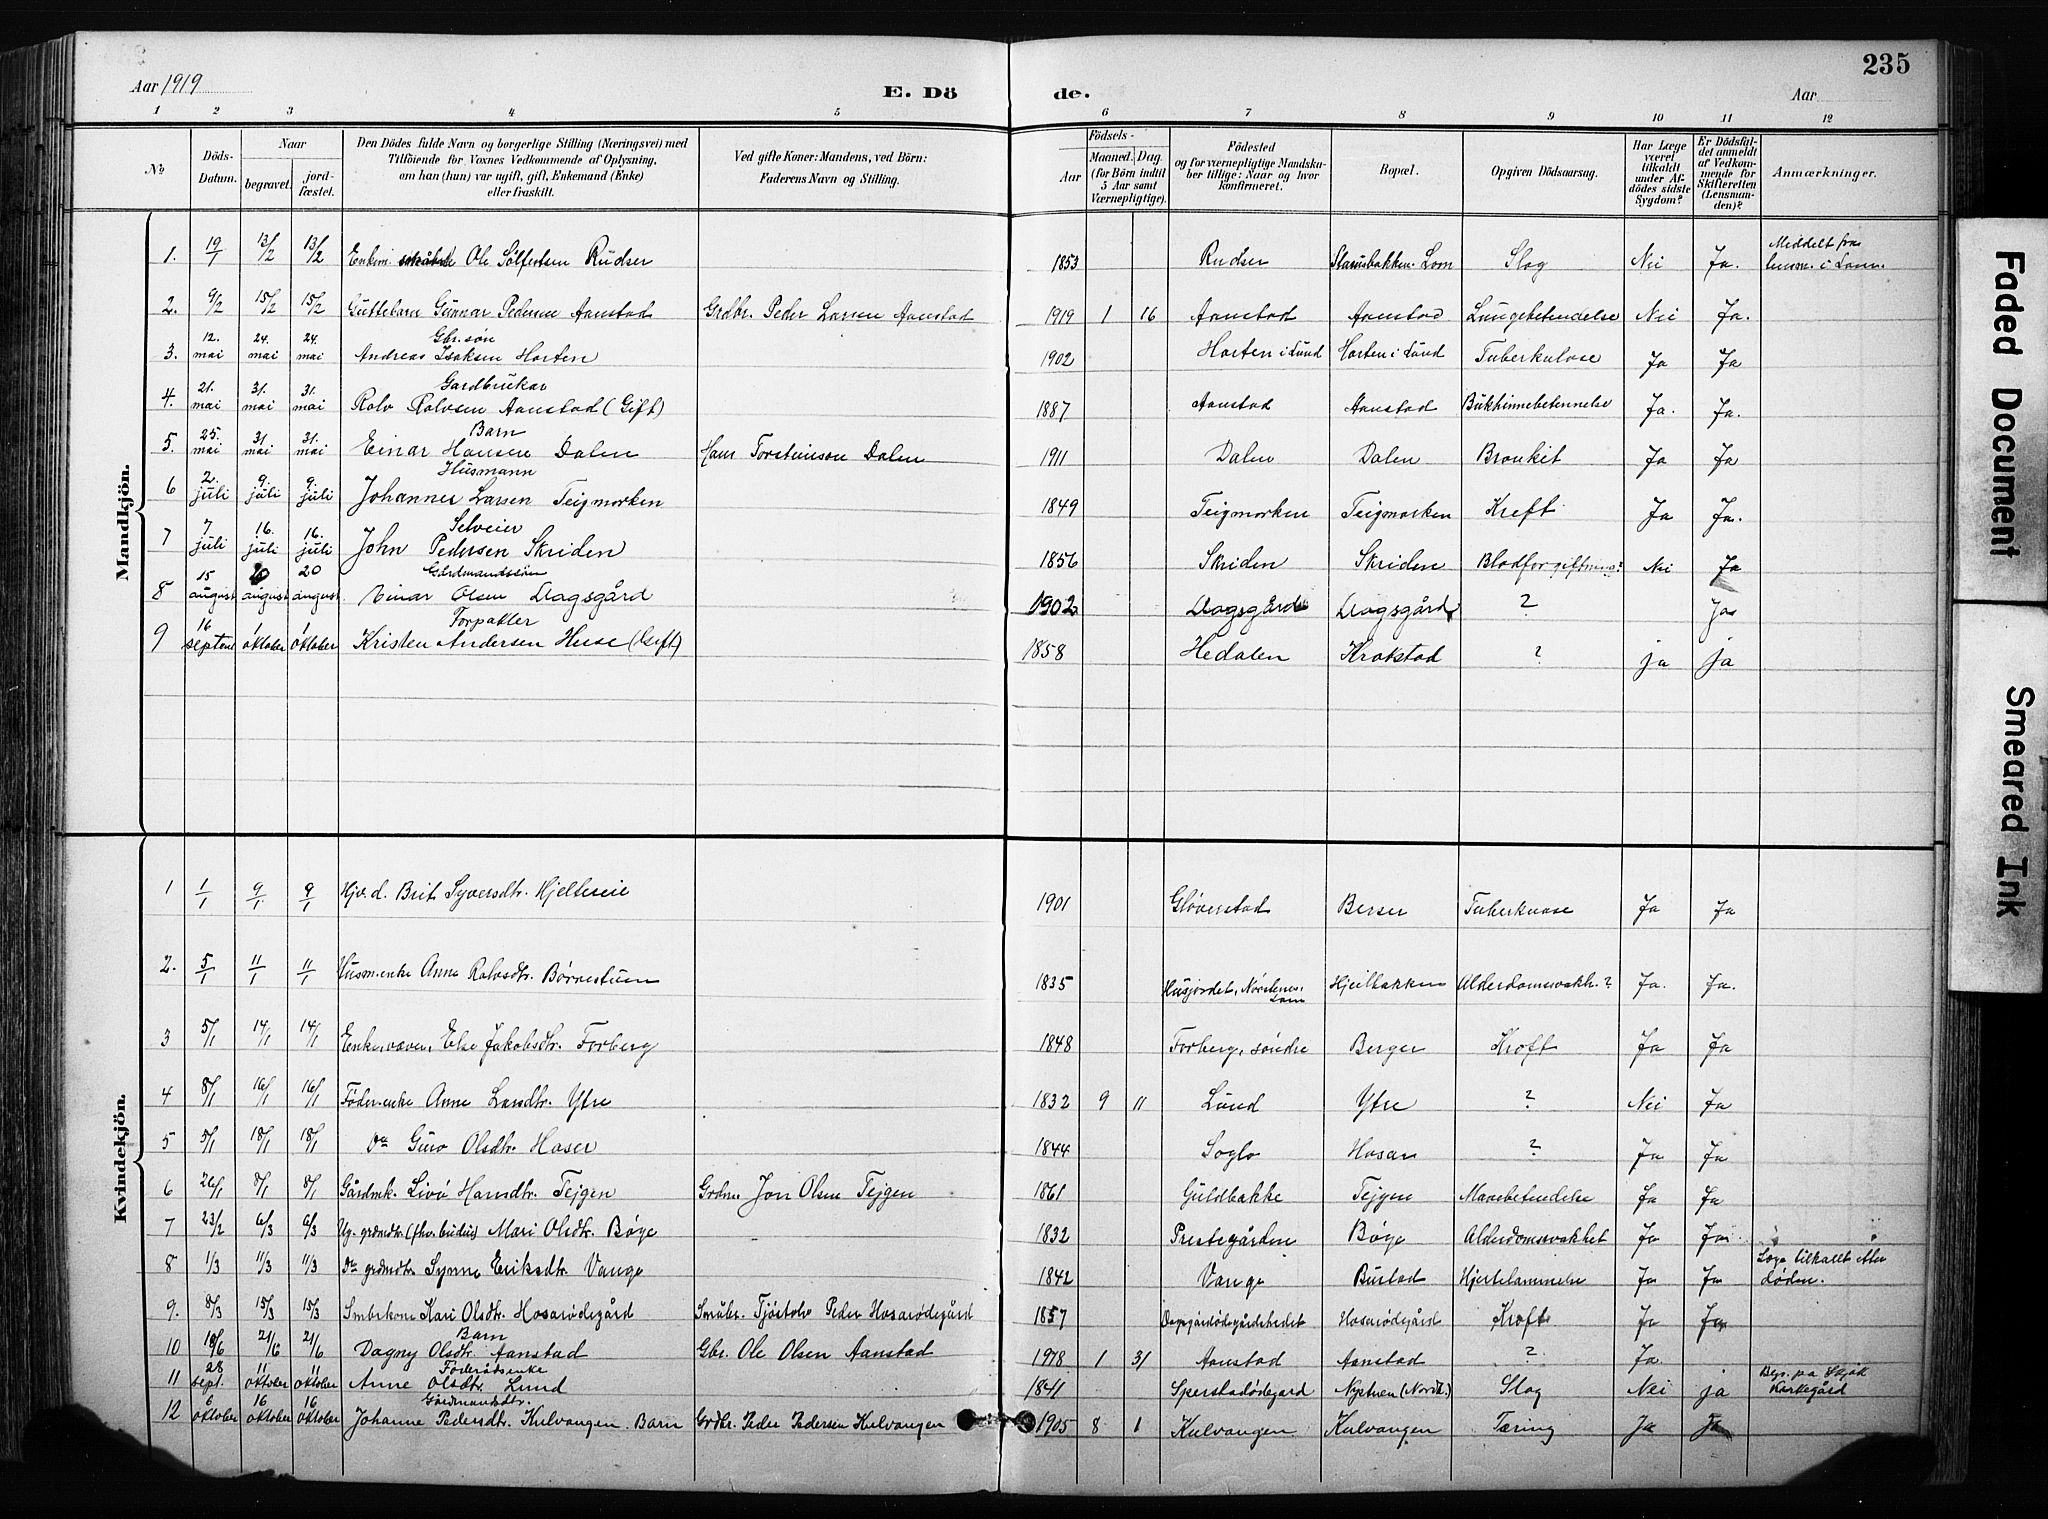 235
Aar 1919
E. Dö
de.
Aar
1 2 3 4 5 6 7 8 9 10 11 12
No
Döds-Datum.
Naar
begravet.
jord-fæstet.
Den Dödes fulde Navn og borgerlige Stilling (Næringsvei) med
Tilföiende for Voxnes Vedkommende af Oplysning,
om han (hun) var ugift, gift, Enkemand (Enke)
eller fraskilt.
Ved gifte Koner: Mandens, ved Börn:
Faderens Navn og Stilling.
Födsels-
Aar
Maaned. Dag.
(for Börn indtil
5 Aar samt
Værnepligtige).
Födested
og for værnepligtige Mandsku-
ber tillige: Naar og hvor
konfirmeret.
Bopæl.
Opgiven Dödsaarsag.
Har Læge
været
tilkaldt
under Af-
dödes sidste
Sygdom?
Er Dödsfal-
det anmeldt
af Vedkom-
mende for
Skifteretten
(Lensman-
den)?
Anmærkninger.
Mandkjön.
1. 19/1 13/2 13/2 Enkem. Ole Sölfestsen Rudser 1853 Rudser Lom Slag Nei Ja. Meddelt fra lensm. i Lom.
2. 9/2 15/2 15/2 Guttebarn Gunnar Pedersen Aanstad Grdbr. Peder Larsen Aanstad 1919 1 16 Aanstad Aanstad Lungebetendelse Nei Ja.
3. 12. mai 24. mai 24. mai Gbr. søn Andreas Isaksen Horten 1902 Horten i Lund Horten i Lund Tuberkulose Ja Ja
4. 21. mai 31. mai 31. mai Gardbrukar Rolv Rolvsen Aanstad (Gift) 1887 Aanstad Aanstad Bukhinnebetennelse Ja. Ja.
5. 25. mai 31. mai 31. mai Barn Einar Hansen Dalen Hans Torsteinson Dalen 1911 Dalen Dalen Bronkit Ja Ja
6 2. juli 9. juli 9. juli Husmann Johannes Larsen Teigmorken 1849 Teigmorken Teigmorken Kreft Ja Ja.
7 7 juli 16. juli 16. juli Selveier John Pedersen Skriden 1856 Skriden Skriden Blodforgiftning? Nei Ja
8 15 august 20 august 20 august Gårdmandssøn Einar Olsen Dagsgård 1902 Dagsgård Dagsgård ? Ja
9 16 septem 1 oktober 1 oktober Forpakter Kristen Andersen Huse (Gift) 1858 Hedalen Krokstad ? ja ja
Kvindekjön.
1 1/1 9/1 9/1 Hjv. d. Brit Syversdtr. Hjelteseie 1901 Gløverstad Berger Tuberkuose Ja Ja
2. 5/1 11/1 11/1 Husm.enke Anne Rolvsdtr. Børrestuen 1835 Husjordet, Lom Hjeilbakken Alderdomsvakh.? Ja. Ja.
3 5/1 14/1 14/1 Else Jakobsdtr. Forberg 1848 Forberg, søndre Berger Kreft Ja Ja
4 8/1 16/1 16/1 Føder.enke Anne Larsdtr. Ytre 1832 9 11 Lund Ytre ? Nei Ja
5 5/1 18/1 18/1 Do Guro Olsdtr. Hosar 1844 Soglo Hosar ? Ja Ja
6 26/1 8/1 8/1 Gårdmk. Livö Hansdtr. Tejgen Grdm. Jon Olsen Tejgen 1861 Guldbakke Tejgen Mavebetendelse Ja Ja
7 23/2 6/3 6/3 Ug. grdmdtr. (fhv. budeie) Mari Olsdtr. Bøge 1832 Prestegården Bøge Alderdomssvakhet Ja Ja
8 1/3 11/3 11/3 Do grdmdtr. Synne Eriksdtr. Vange 1842 Vange Bustad Hjertelammelse Ja Ja Læge tilkallt efter døden.
9. 8/3 15/3 15/3 Smbrkone Kari Olsdtr. Hosarødegård Småbr. Tjøstolv Peder Hosarødegård 1857 Hosarødegård Kreft Ja Ja
10 10/6 21/6 21/6 Barn Dagny Olsdtr. Aanstad Gbr. Ole Olsen Aanstad 1918 1 31 Aanstad Aanstad ? Ja
11 28 sept. 11 oktober 11 oktober Föderådsenke Anne Olsdtr. Lund 1841 Sperstadødegard Nystuen (Nordb.) Slag Nei ja Begr. på Skjåk Kirkegård
12 6 oktober 16 oktober 16 oktober Gårdmandsdtr. Johanne Pedersdtr. Kulvangen. Barn Grdbr. Peder Pedersen Kulvangen 1905 8 1 Kulvangen Kulvangen Tæring Ja Ja
Faded Document
Smeared Ink